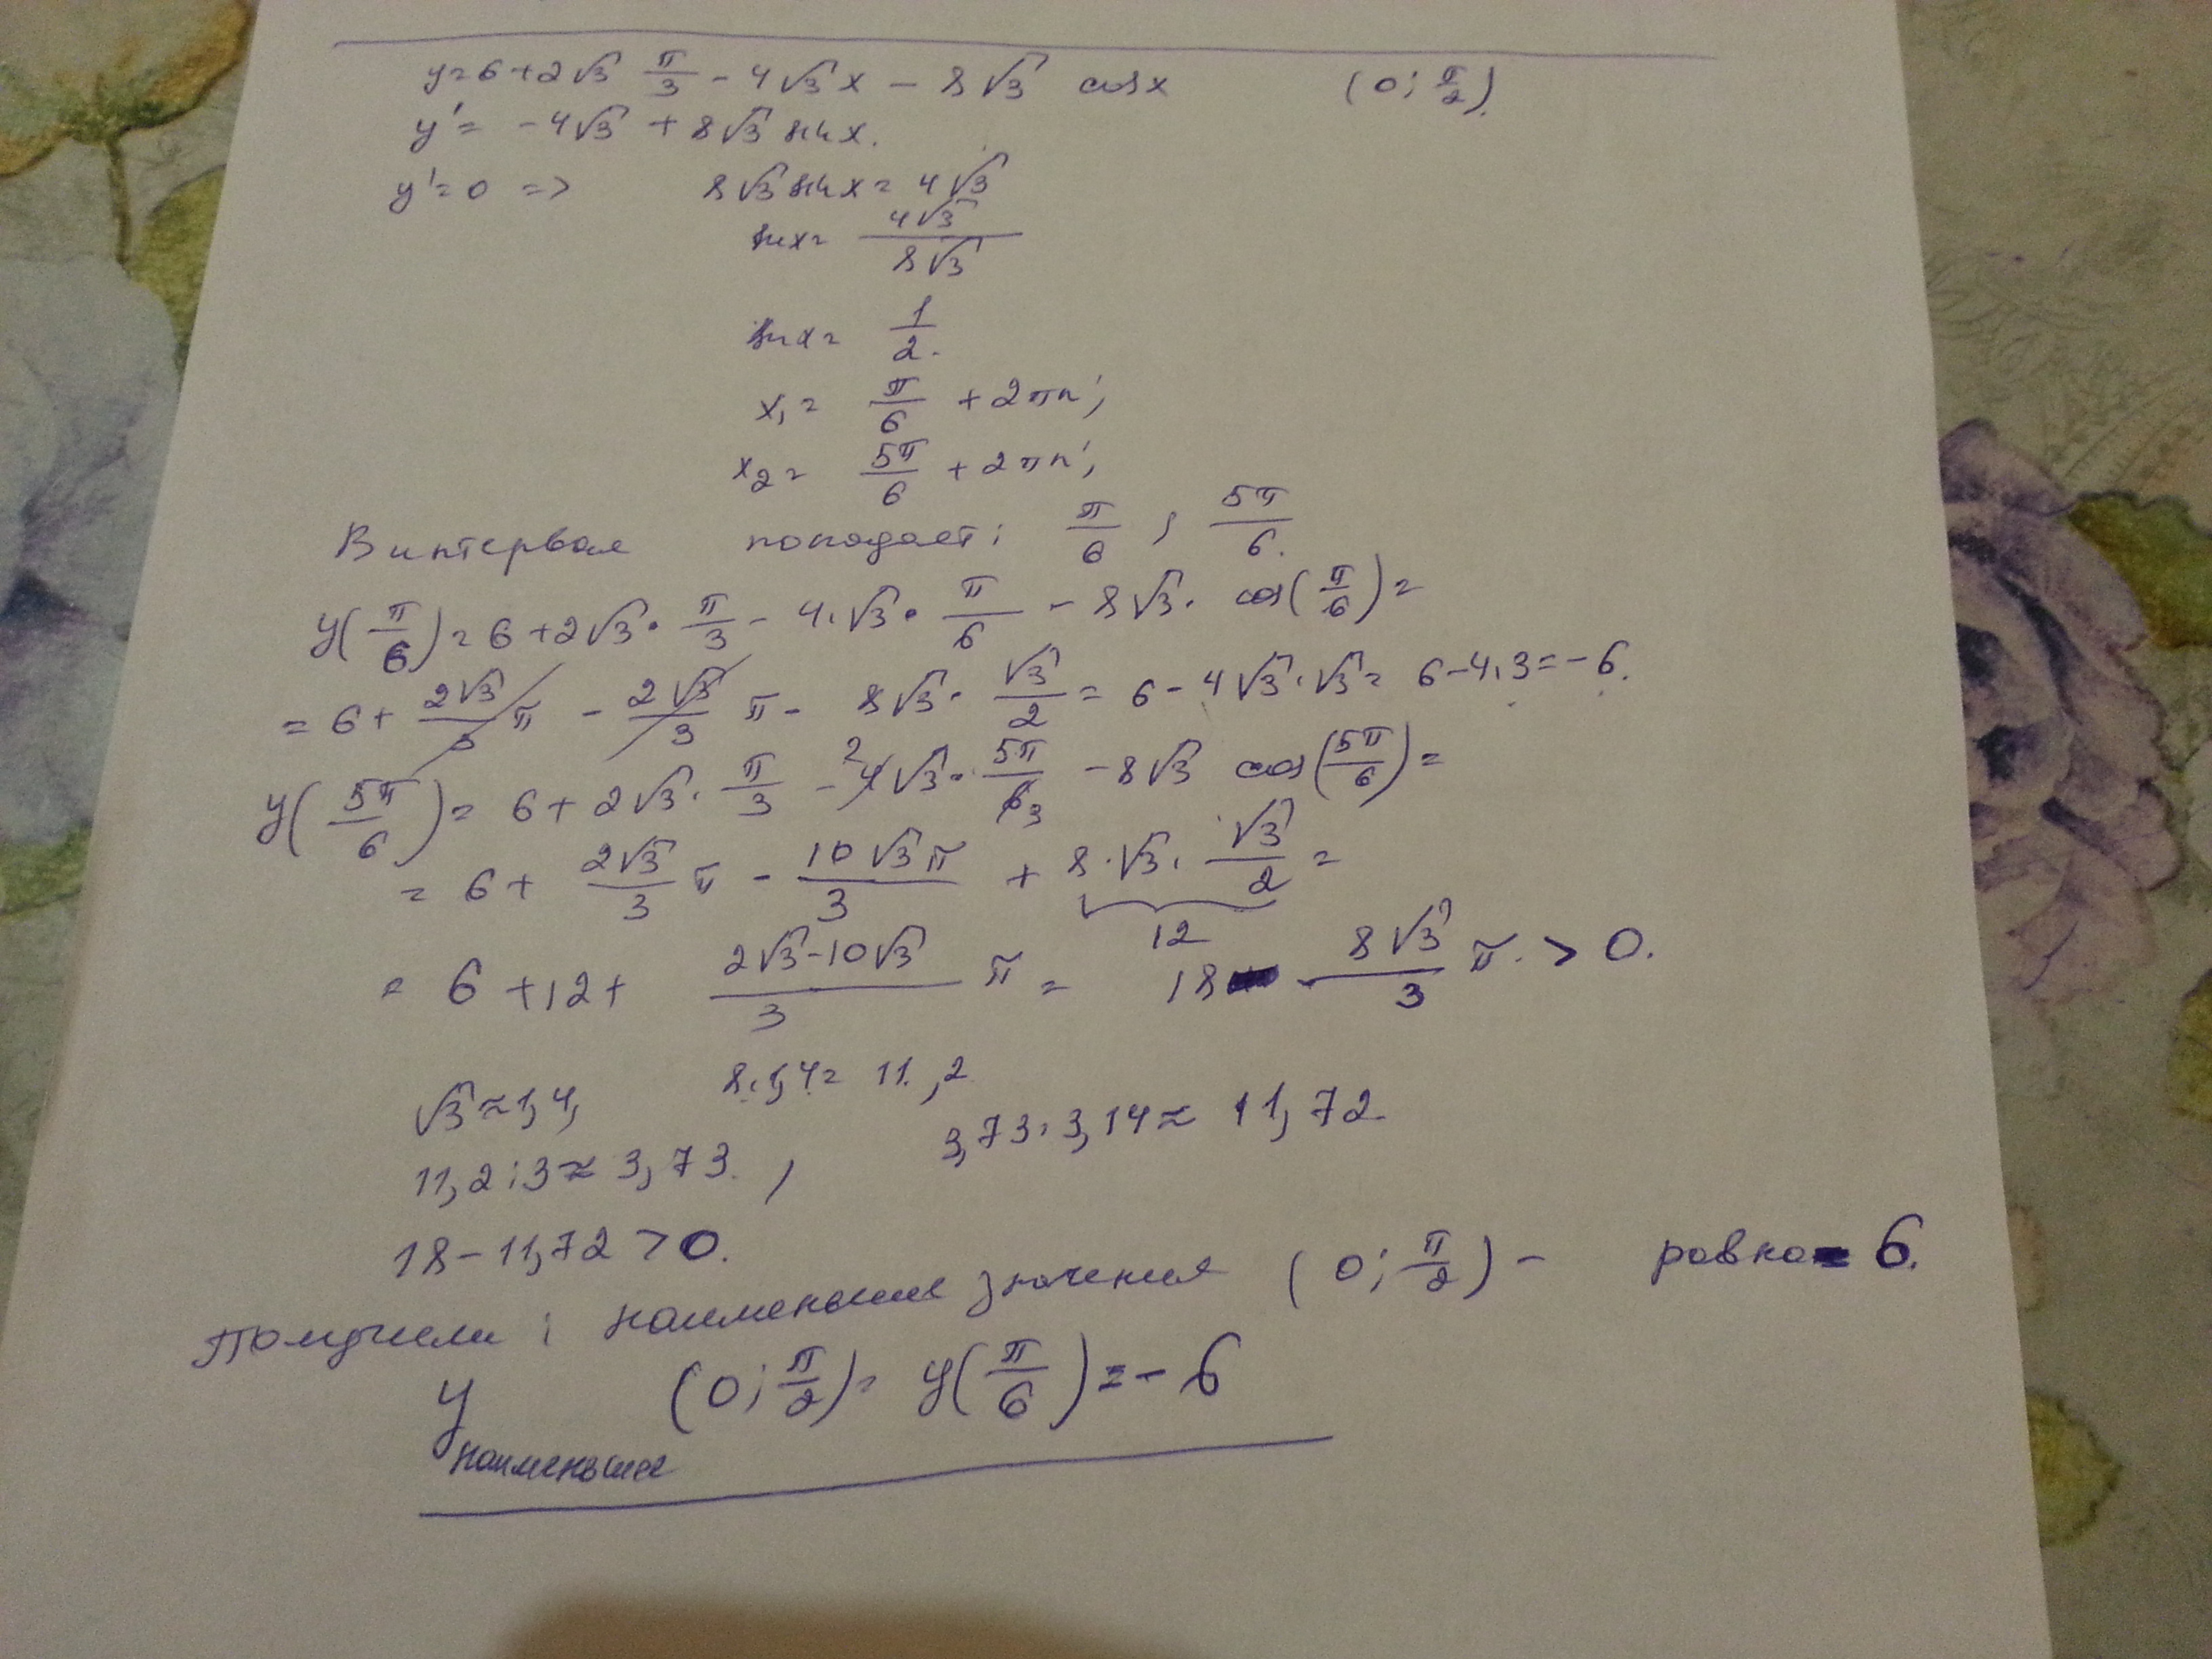 y=6+2√3 π/3 - 4√3 x - 8√3 cosx (0; π/2).
y' = -4√3 + 8√3 sin x.
y'=0 => 8√3 sin x = 4√3
sin x = 4√3/8√3
sin x = 1/2.
x₁ = π/6 + 2πn;
x₂ = 5π/6 + 2πn;
В интервал попадает: π/6 ; 5π/6.
y(π/6) = 6 + 2√3 · π/3 - 4·√3 · π/6 - 8√3 · cos(π/6) =
= 6 + 2√3/3 π - 2√3/3 π - 8√3 · √3/2 = 6 - 4√3·√3 = 6-4·3 = -6.
y(5π/6) = 6 + 2√3 · π/3 - ²4√3 · 5π/6₃ - 8√3 cos(5π/6) =
= 6 + 2√3/3 π - 10√3π/3 + 8·√3·√3/2 =
12
= 6 + 12 + 2√3-10√3/3 π = 18 - 8√3/3 π > 0.
√3 ≈ 1,4, 8·1,4 = 11,2
11,2:3 ≈ 3,73. , 3,73·3,14 ≈ 11,72
18 - 11,72 > 0.
Получили: наименьшее значения (0; π/2) - равно - 6.
y наименьшее (0; π/2) = y(π/6) = -6